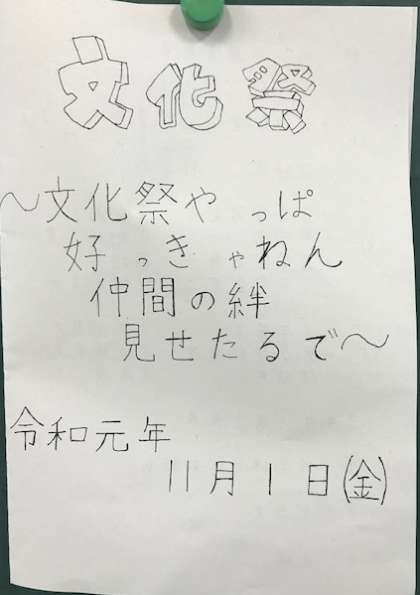 文化祭
～文化祭やっぱ
好っきゃねん
仲間の絆
見せたるで～
令和元年
11月1日(金)